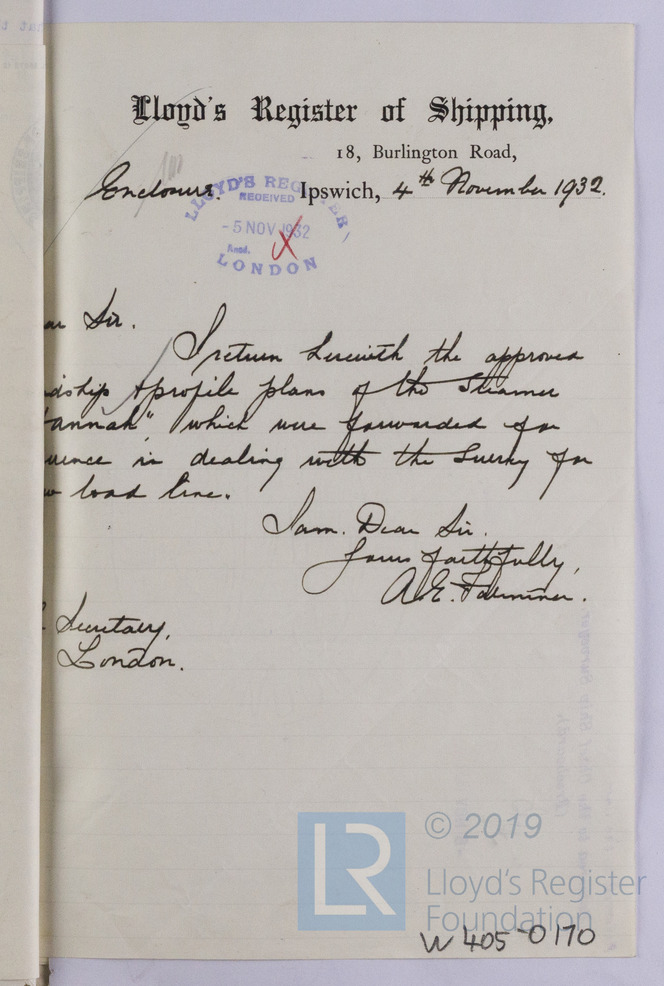 Lloyd's Register of Shipping,
18, Burlington Road,
Enclosure. Ipswich, 4th November 1932.
LLOYD'S REGISTER,
RECEIVED
- 5 NOV 1932
Ansd.
LONDON
ar Sir.
I return herewith the approved
dship & profile plans of the Steamer
annah", which were forwarded for
rence in dealing with the Survey for
w load line.
I am. Dear Sir.
Yours faithfully,
Secretary,
London.
LR © 2019
Lloyd's Register
Foundation
W405-0170